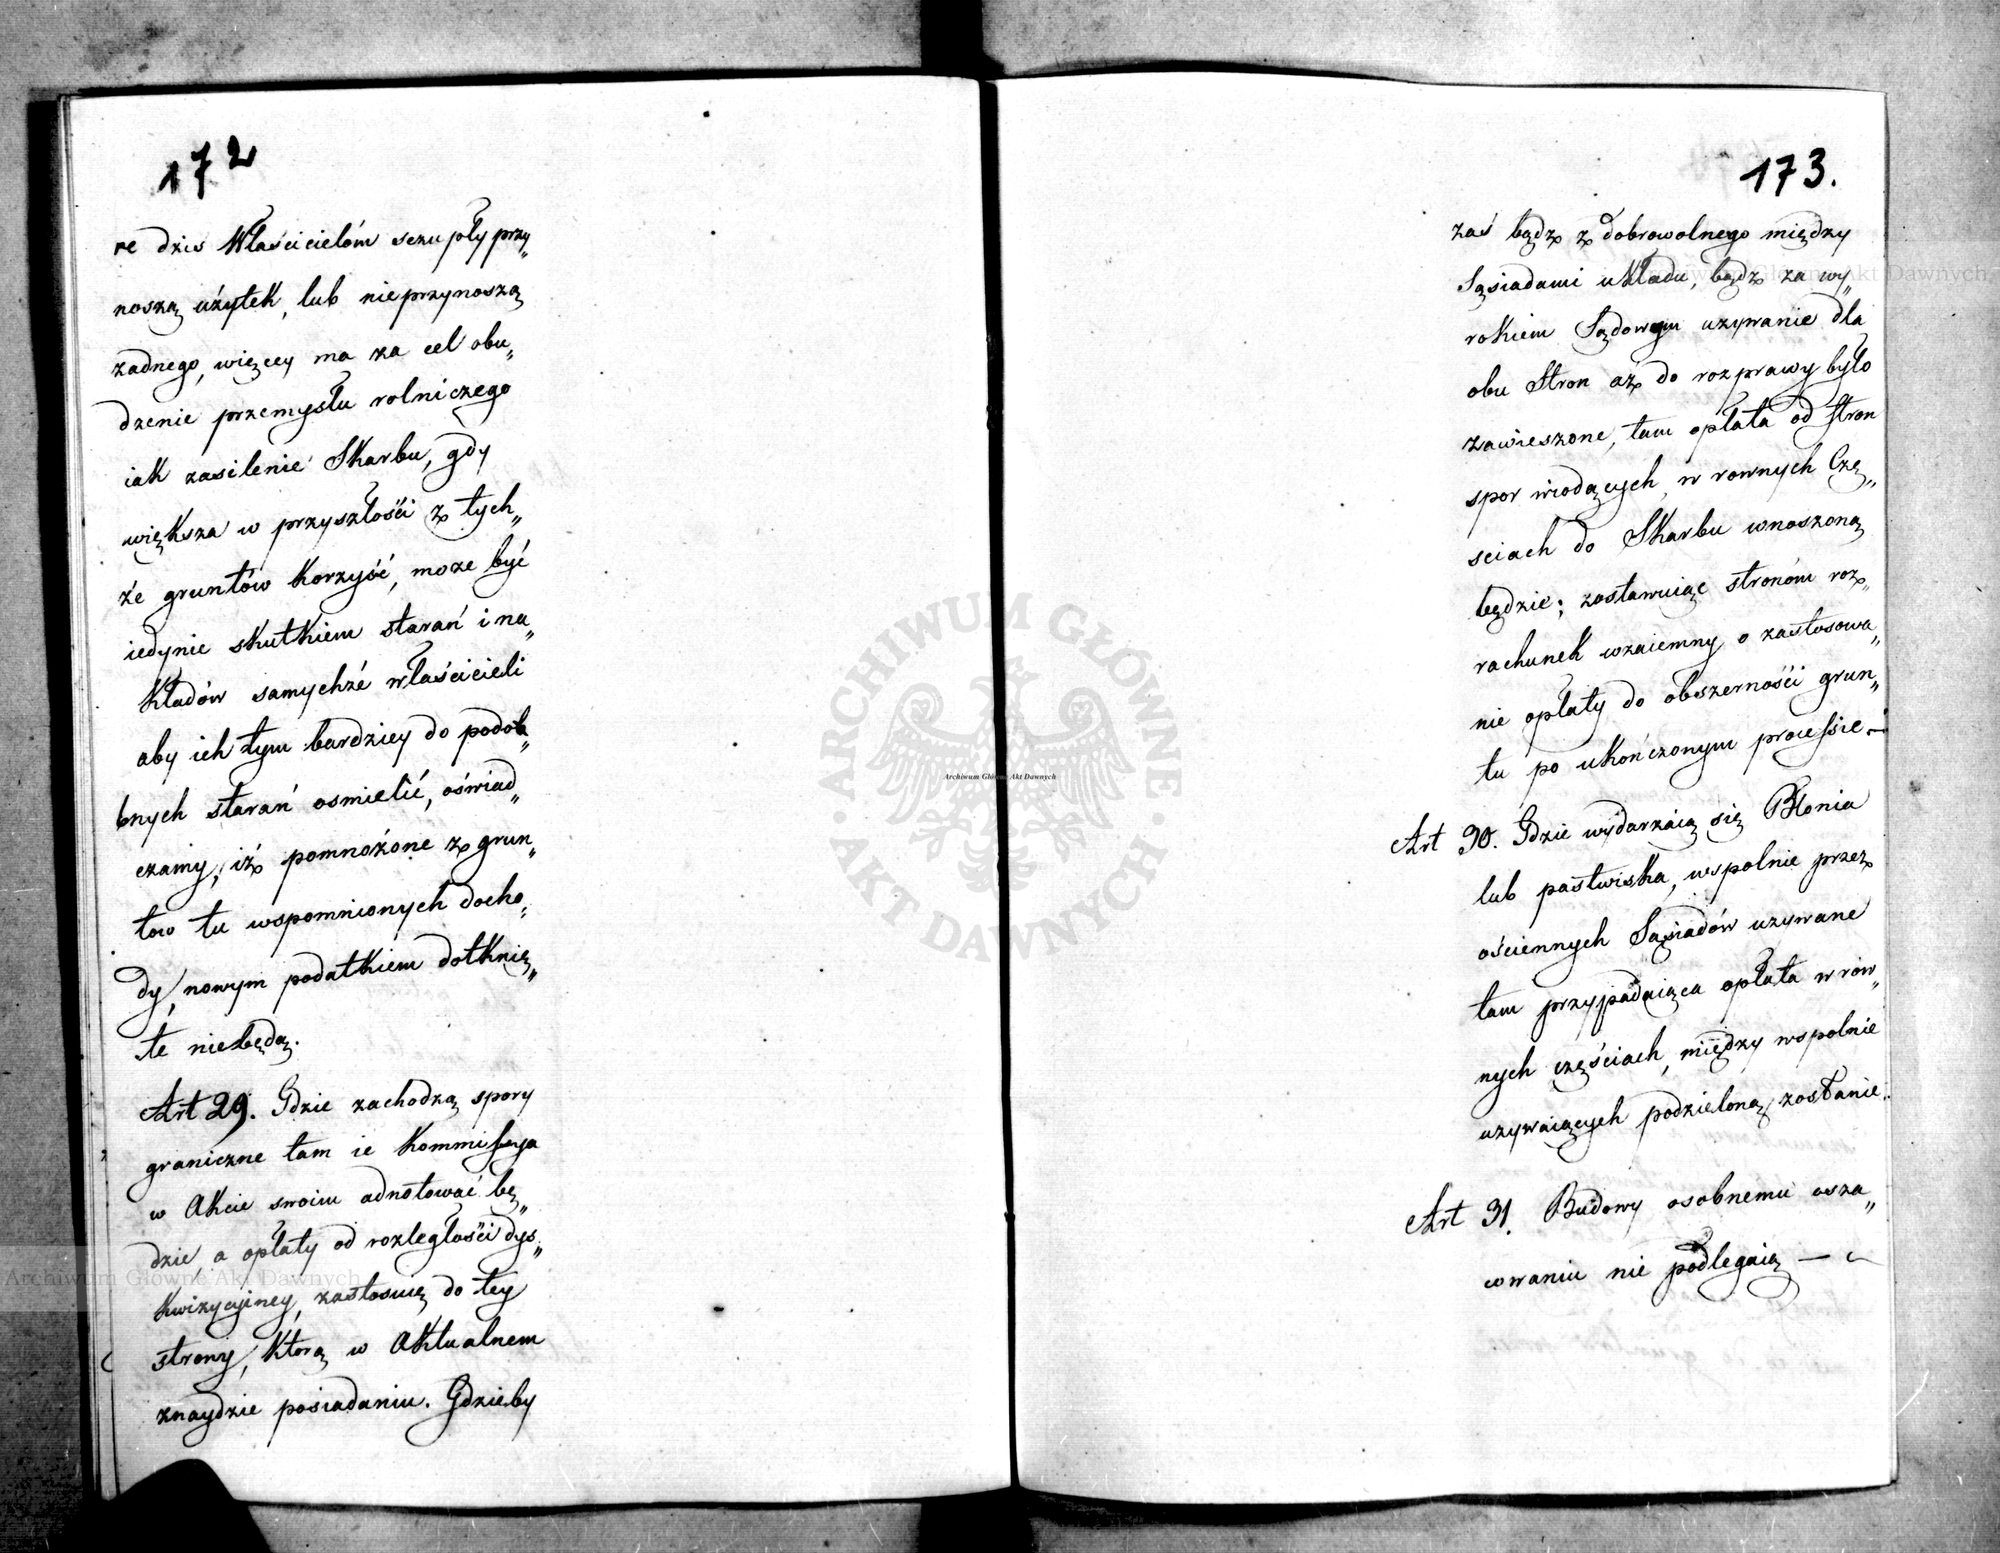 172
re dzis Właścicielóm szczupły przy„
noszą użytek, lub nieprzynoszą
żadnego, więcey ma za cel obu„
dzenie przemysłu rolniczego
iak zasilenie Skarbu, gdy
większa w przyszłości z tych„
że gruntów korzyść, może być
iedynie skutkiem starań i na„
kładów samychże właścicieli
aby ich tym bardziey do podob„
bnych starań osmielić, oświad„
czamy, iż pomnożone z grun„
tow tu wspomnionych docho„
dy, nowym podatkiem dotknię„
te niebędą.
Art 29. Gdzie zachodzą spory
graniczne tam ie Kommissya
w Akcie swoim adnotować bę„
dzie, a opłaty od rozległości dys„
kwizycyiney, zastosuię do tey
strony, ktorą w aktualnem
znaydzie posiadaniu. Gdzieby
173.
zaś bądz z dobrowolnego między
Sąsiadami układu, bądz za wy„
rokiem Sądowym uzywanie dla
obu Stron az do rozprawy było
zawieszone, tam opłata od stron
spor wiodących, w rownych Czę„
sciach do Skarbu wnoszoną
będzie; zostawuiąc stronóm roz„
rachunek wzaiemny o zastosowa„
nie opłaty do obszerności grun„
tu po ukończonym processie.—
Art 30. Gdzie wydarzaią się Błonia
lub pastwiska, wspolnie przez
ościennych Sąsiadów uzywane
tam przypadaiąca opłata w rów„
nych częściach, między wspolnie
uzywaiących podzieloną zostanie.
Art 31. Budowy osobnemu osza„
cowaniu nie podlegaią —
Archiwum Główne Akt Dawnych
ARCHIWUM GŁÓWNE · AKT DAWNYCH ·
Archiwum Główne Akt Dawnych
Archiwum Główne Akt Dawnych